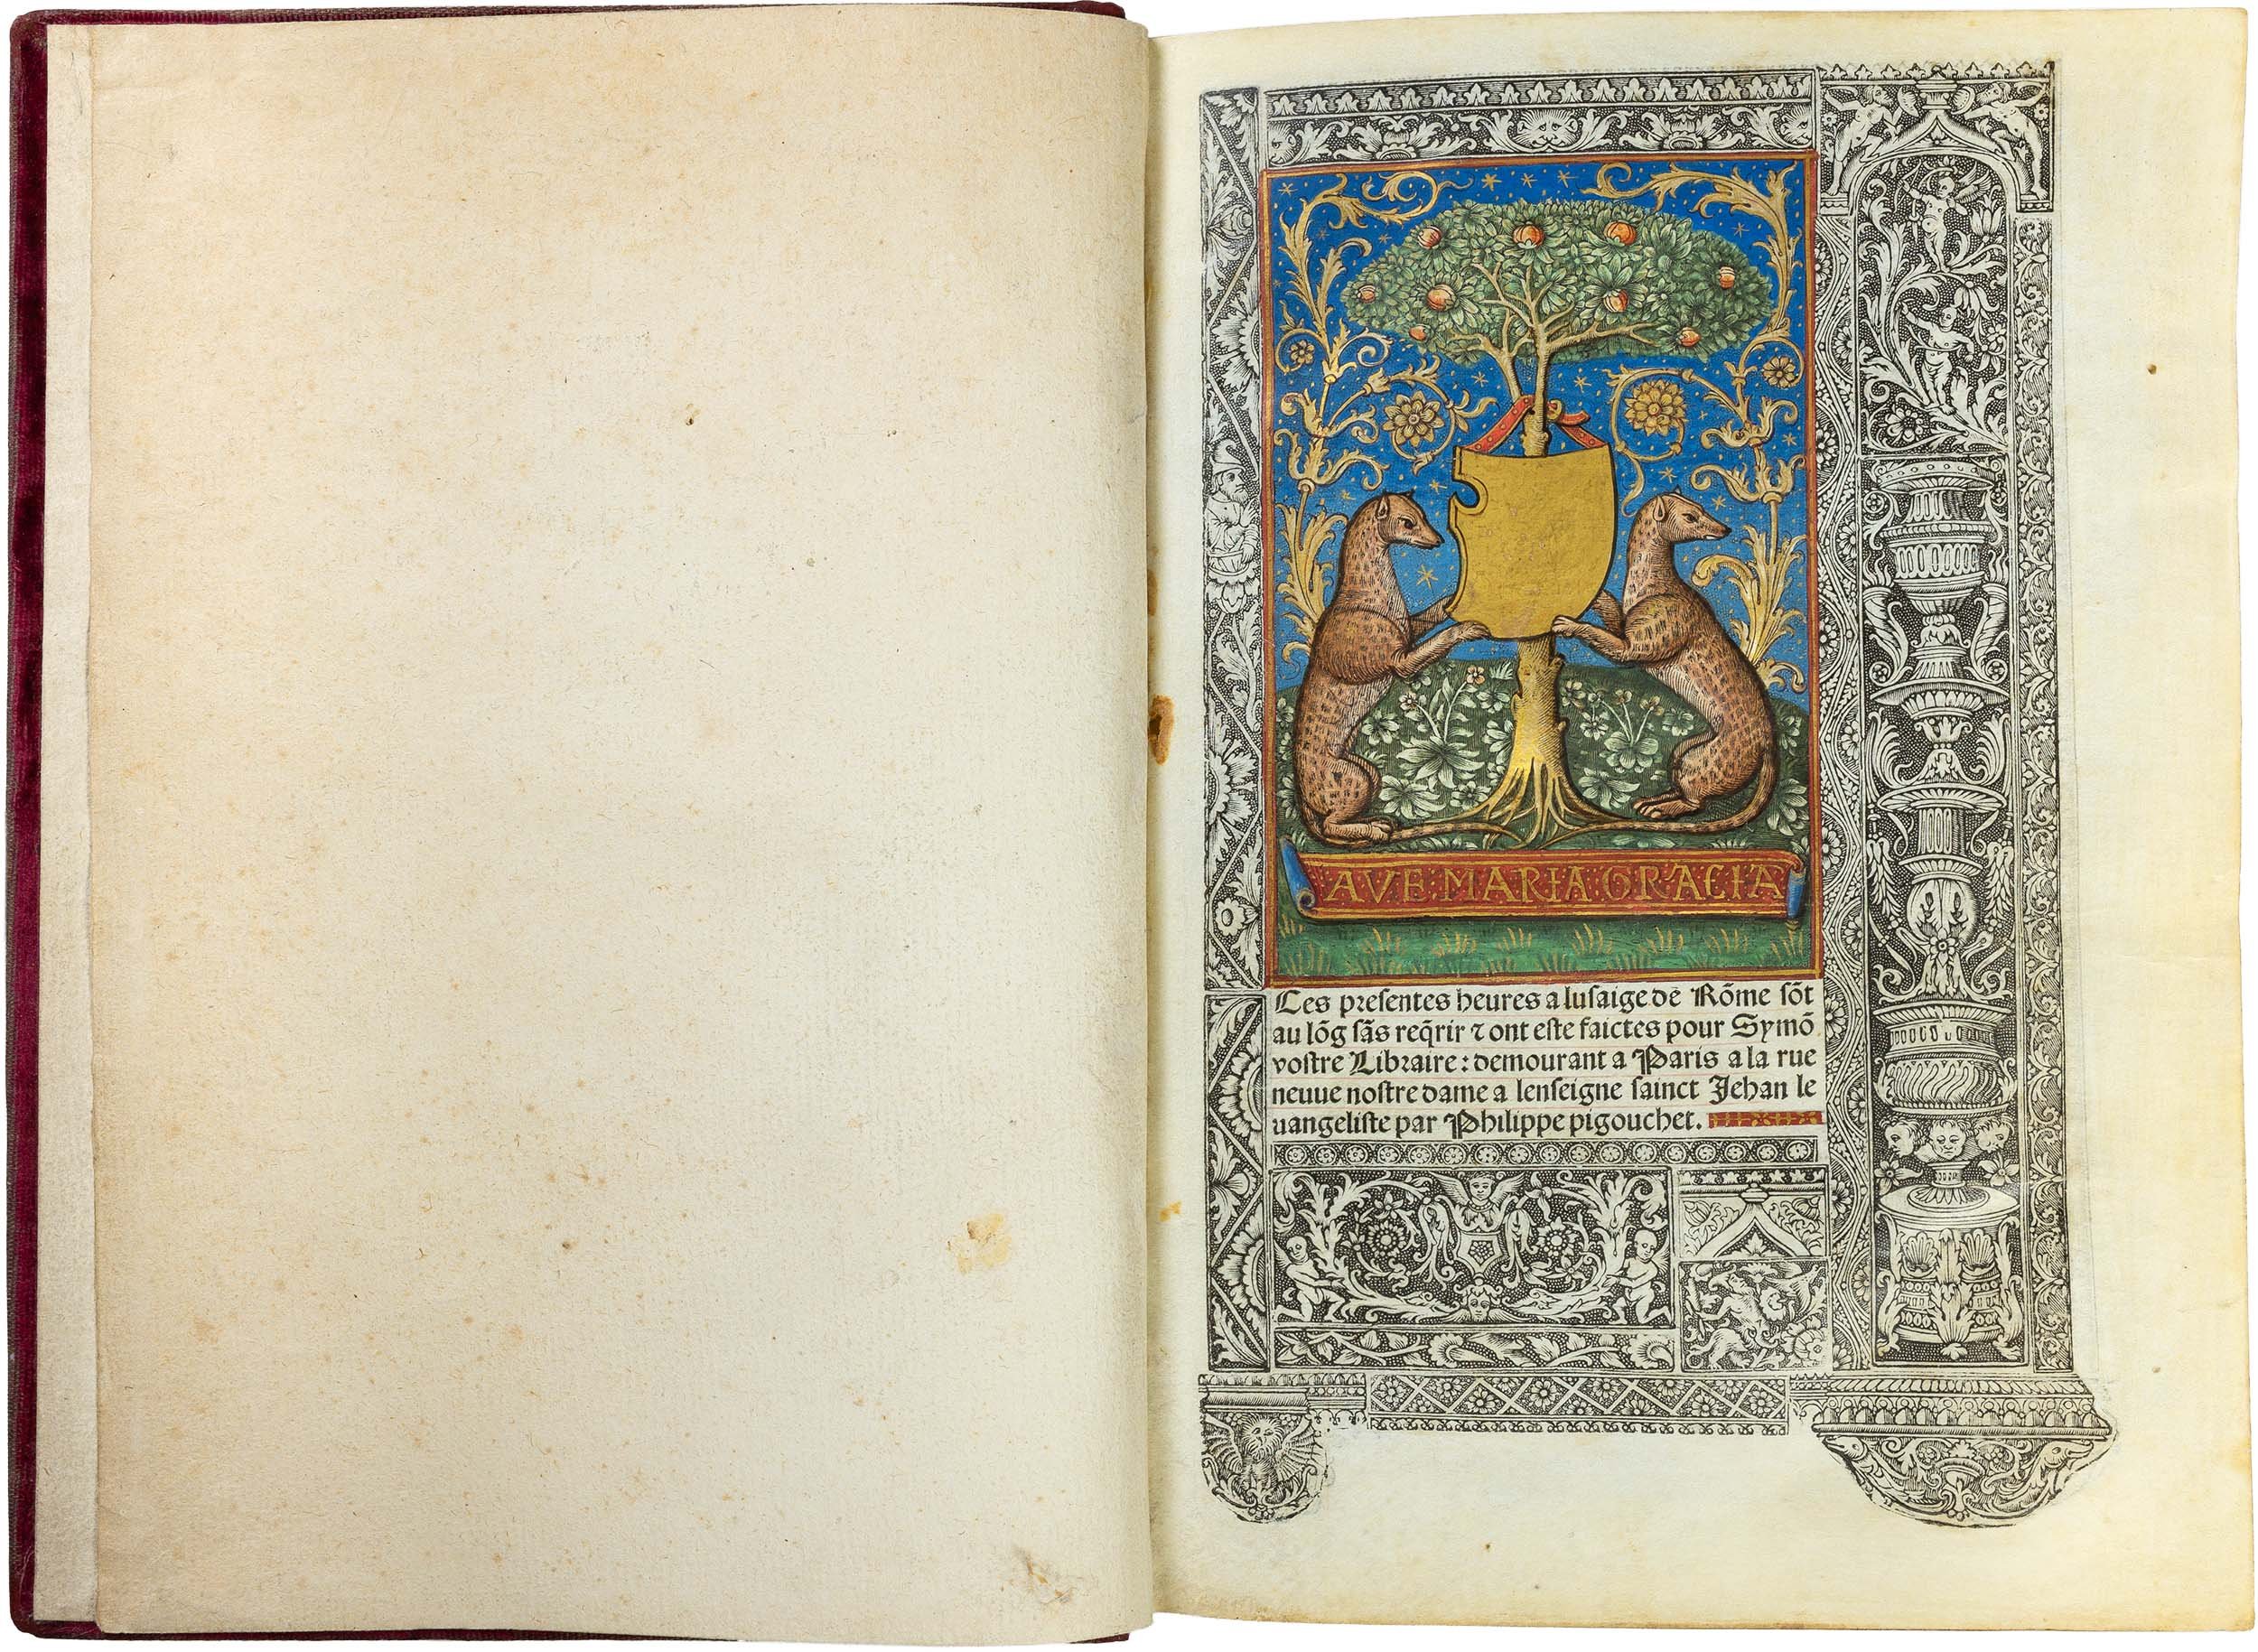 AVE MARIA GRACIA
Les presentes heures a lusaige de Rõme sõt
au lõg sãs req̃rir ⁊ ont este faictes pour Symõ
vostre Libraire: demourant a Paris a la rue
neuue nostre dame a lenseigne sainct Jehan le
uangeliste par Philippe pigouchet.